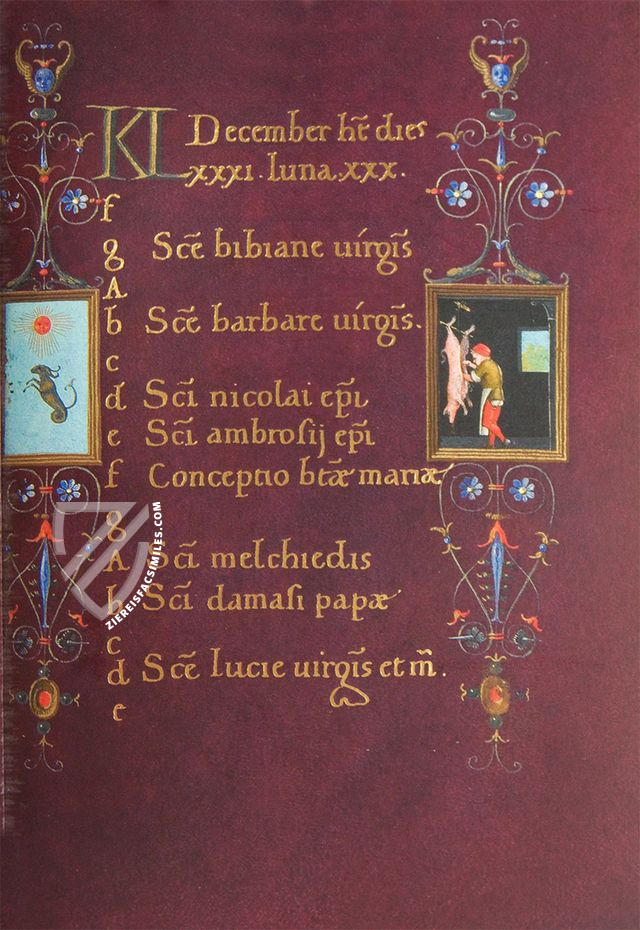 KL December hr̄ dies
xxxi. luna. xxx.
f
g Scē bibiane uirgīs
A
b Scē barbare uirgīs.
c
d Scī nicolai ep̄i
e Scī ambrosij ep̄i
f Conceptio bt̄æ mariæ
g
A Scī melchiedis
b Scī damasi papæ
c
d Scē lucie uirgīs et m̄.
e
ZIEREISFACSIMILES.COM